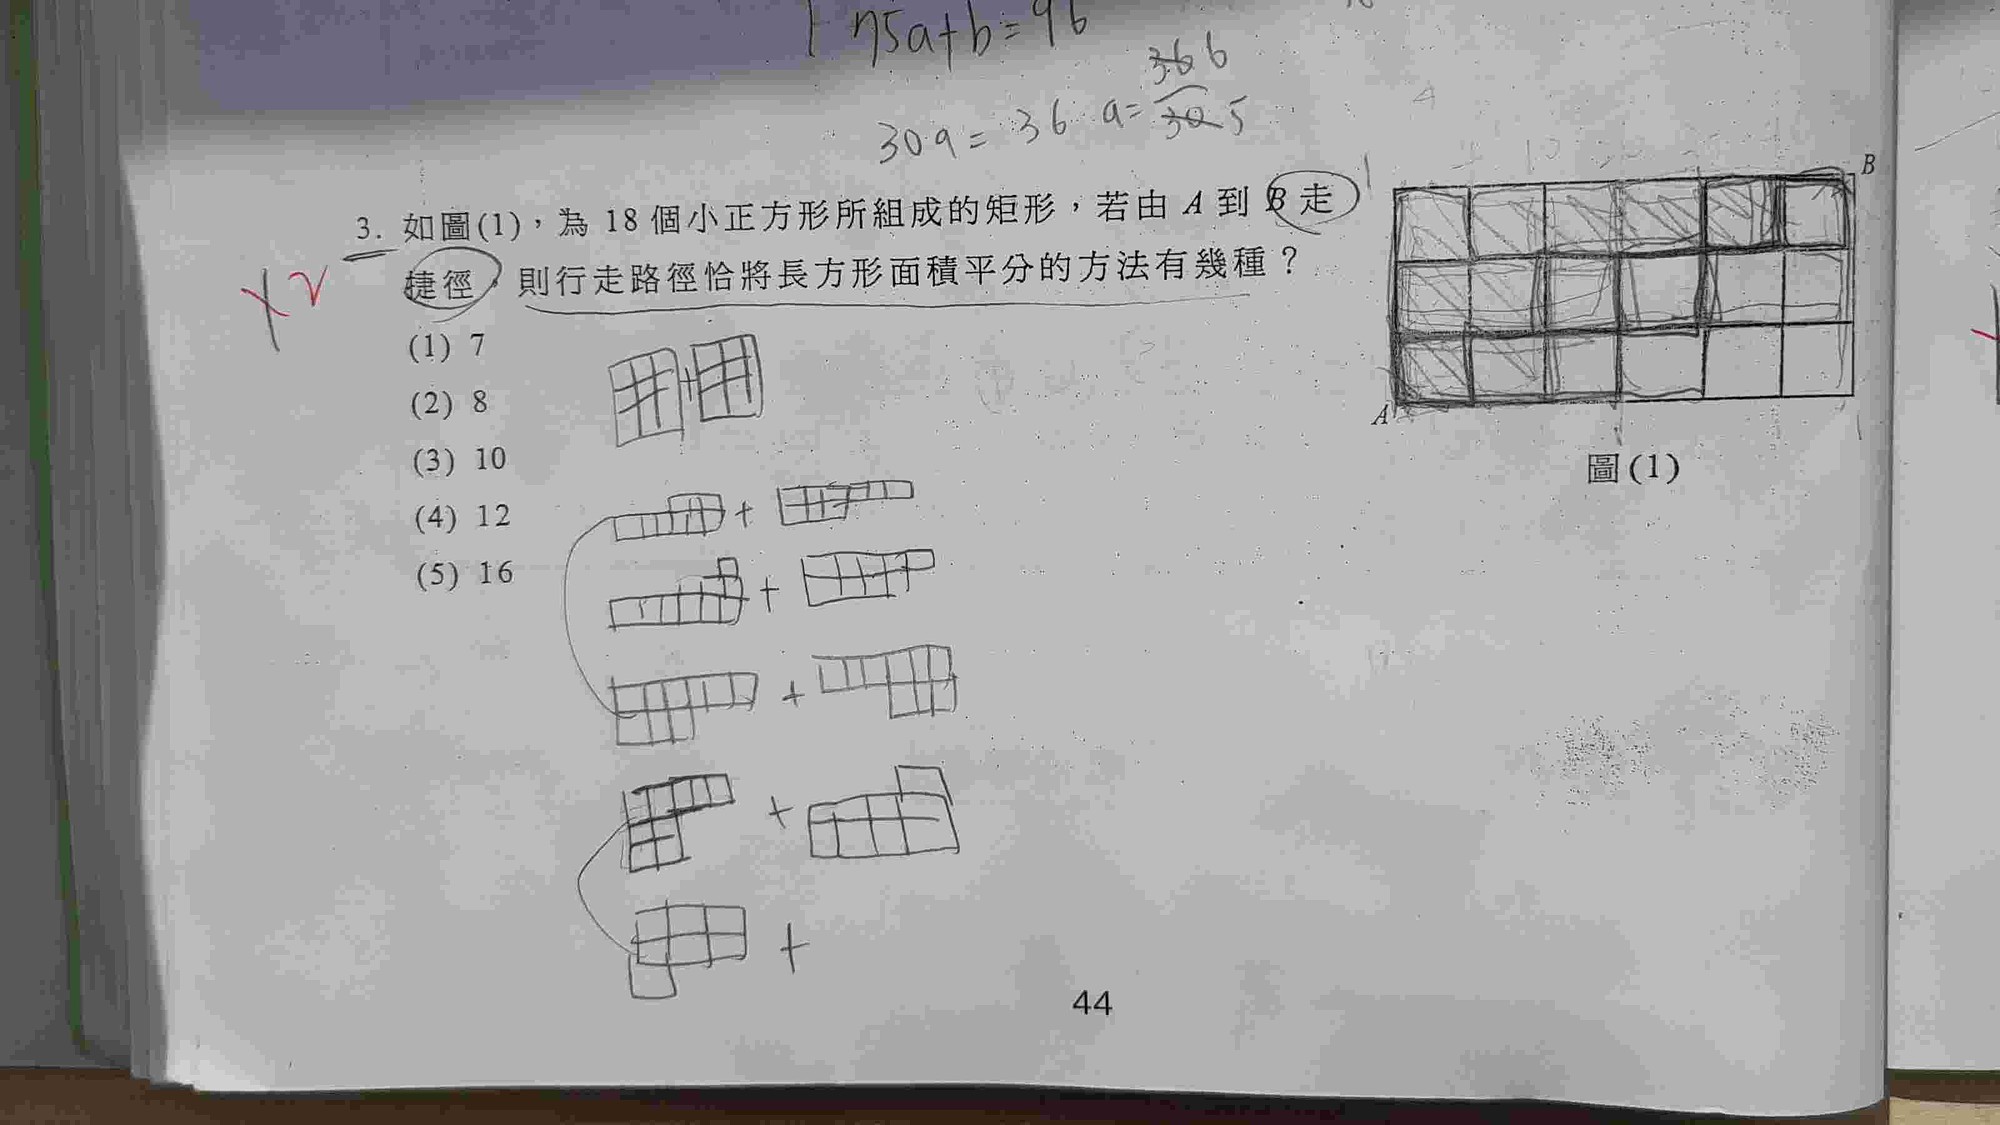 75a+b=96
30a=36 a=36 6
30 5
3. 如圖(1)，為 18 個小正方形所組成的矩形，若由 A 到 B 走
捷徑，則行走路徑恰將長方形面積平分的方法有幾種？
(1) 7
(2) 8
(3) 10
(4) 12
(5) 16
B
A
圖(1)
44